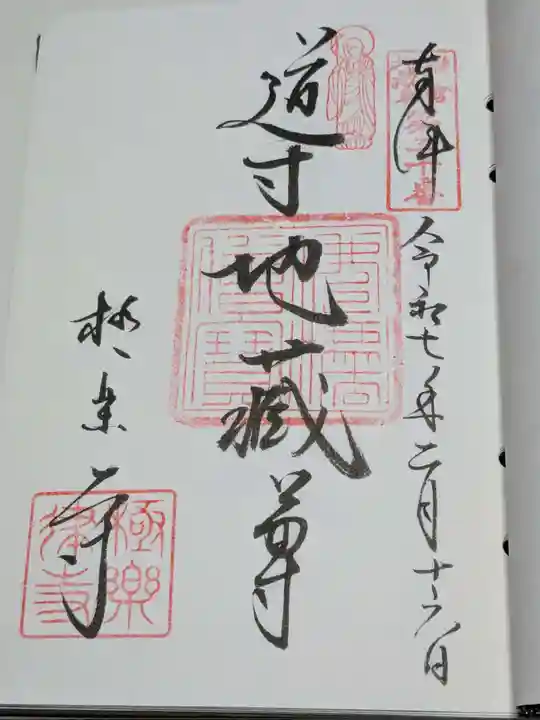 奉拝
令和七年二月十六日
導地蔵尊
極楽寺
極樂
律寺